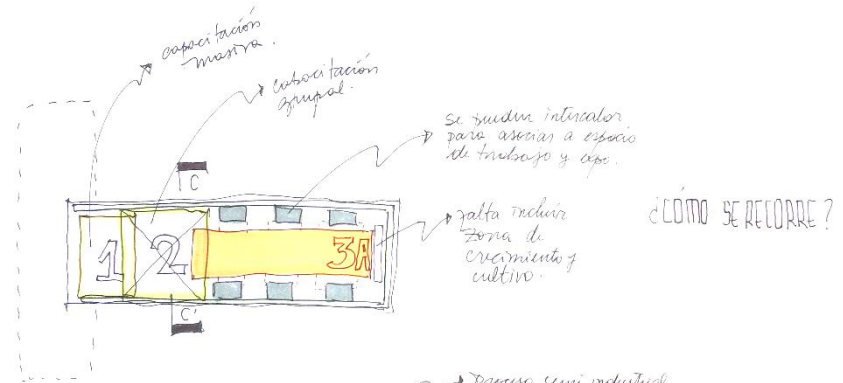 capacitación
masiva.
capacitación
grupal.
se pueden intercalar
para asociar a espacio
de trabajo y capo.
falta incluir
zona de
crecimiento y
cultivo.
¿CÓMO SE RECORRE?
C
1 2 3A
C'
Proceso semi industrial